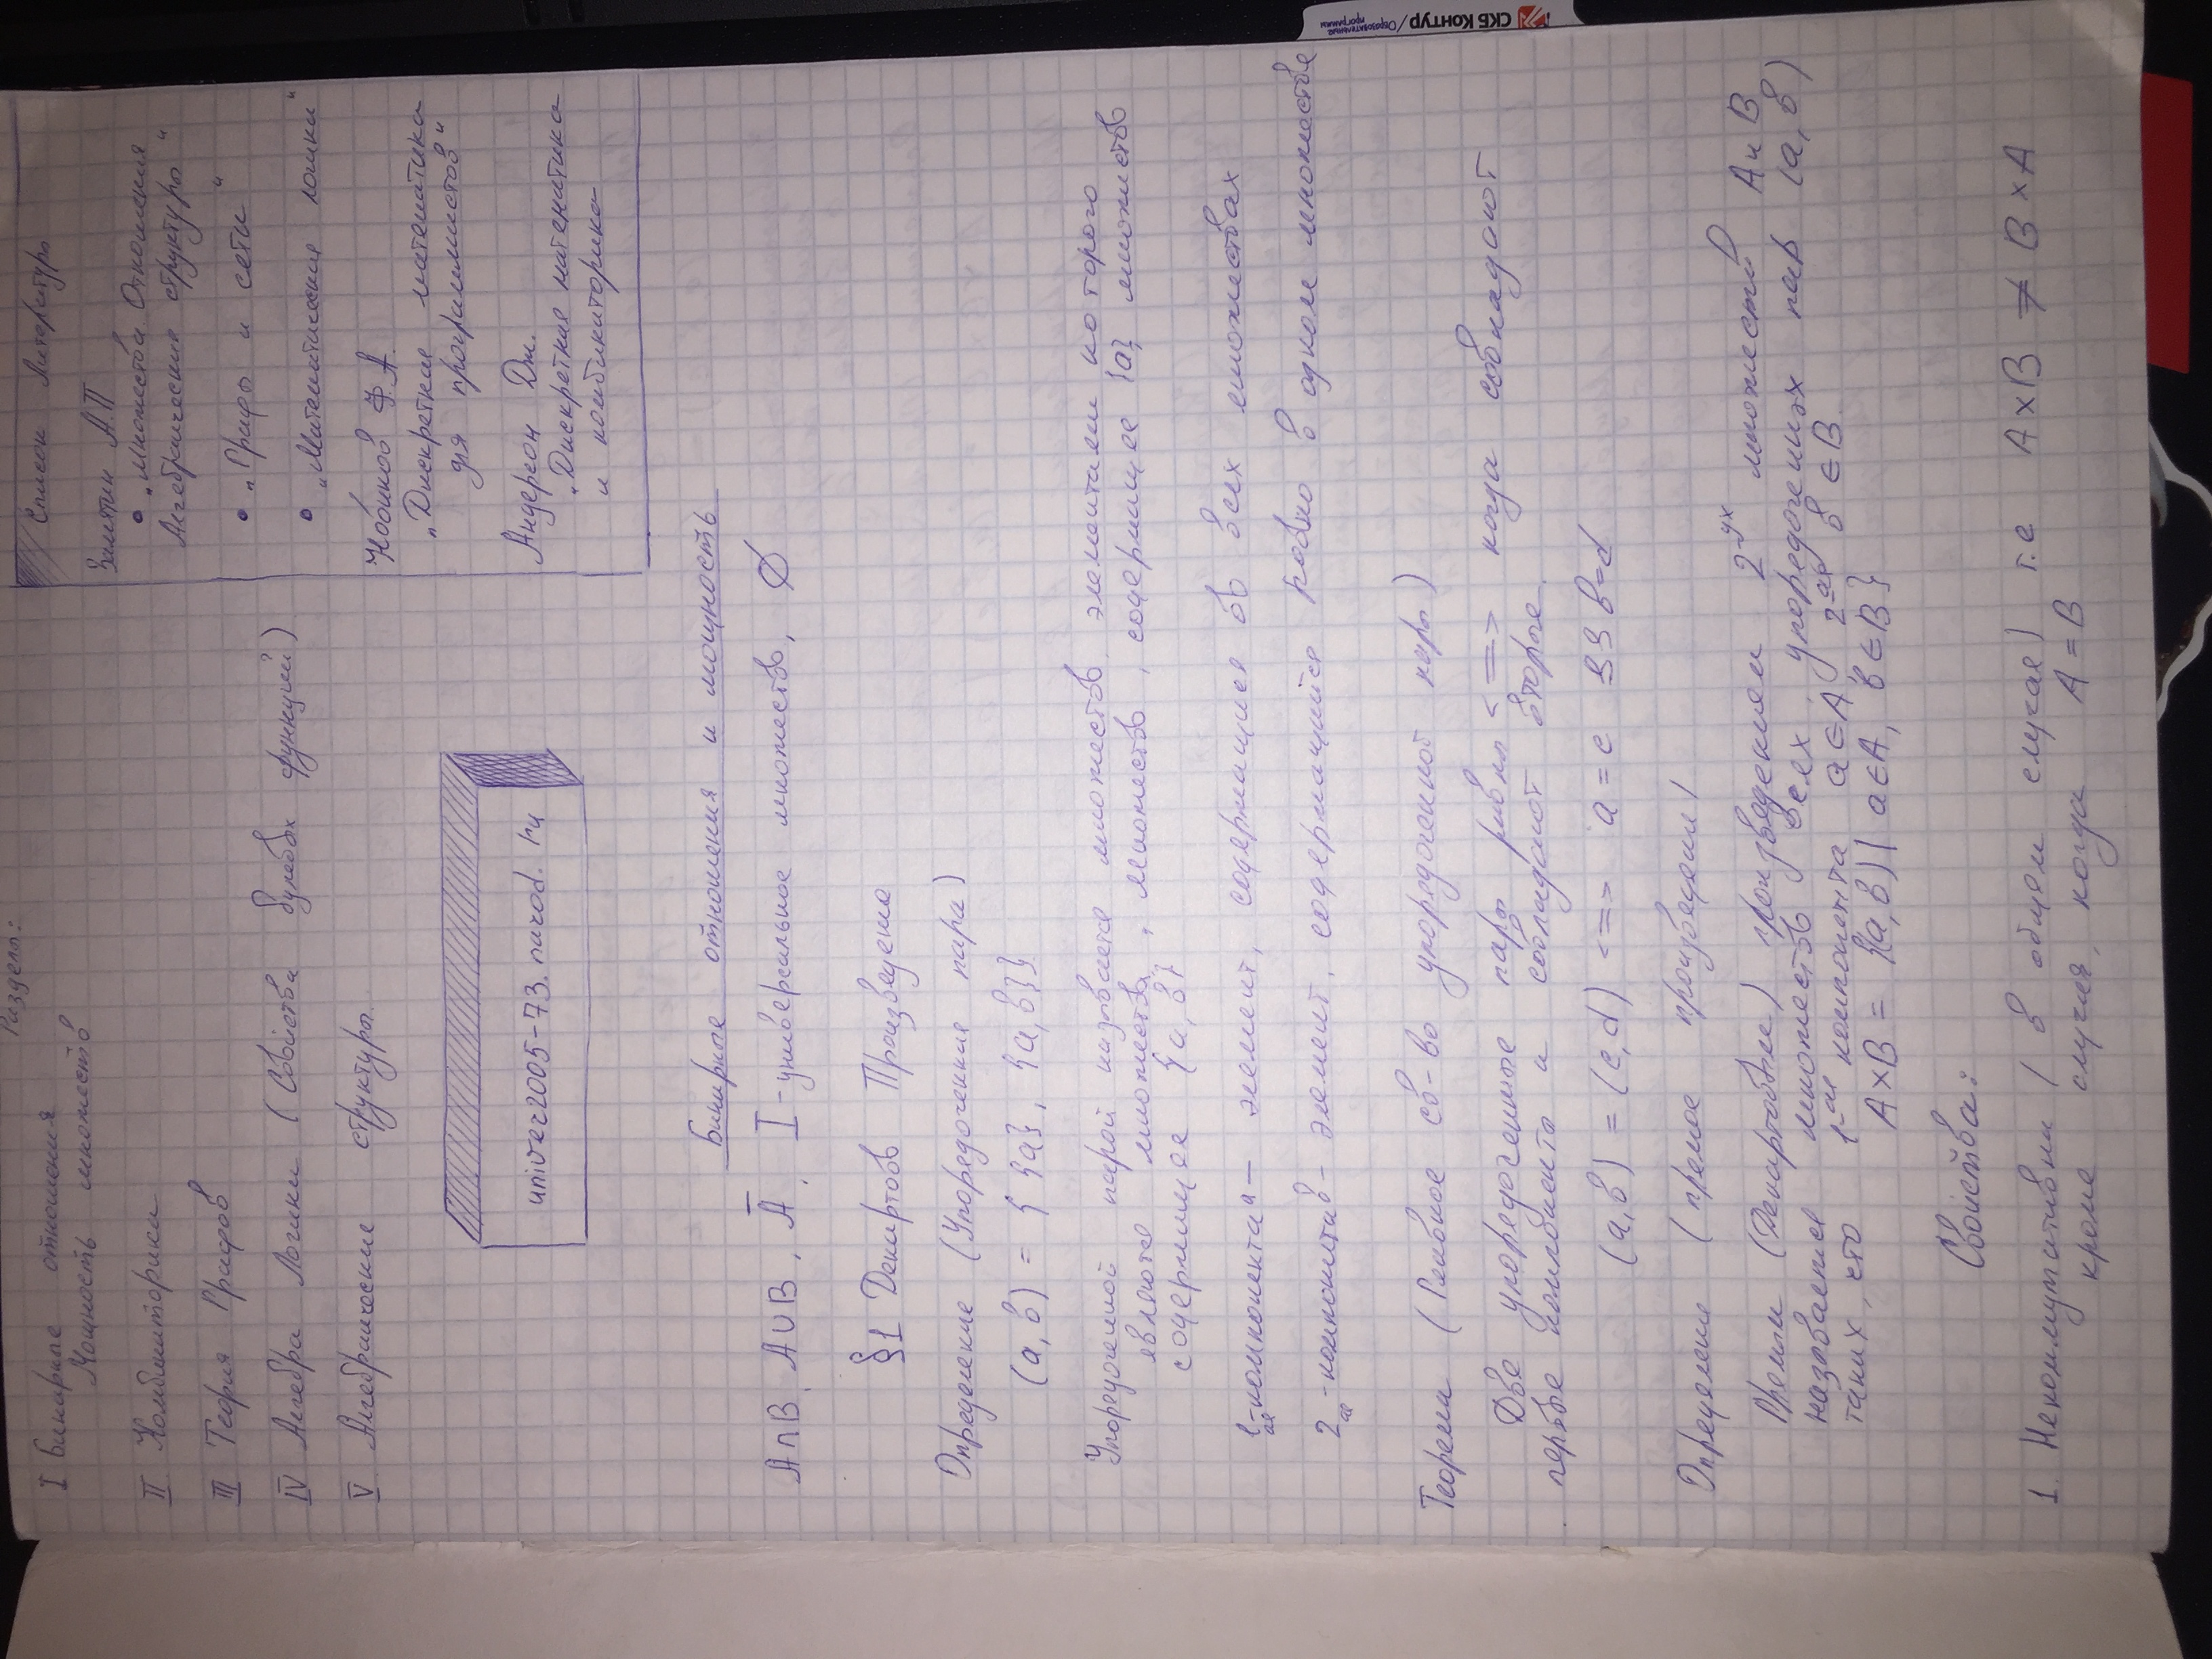 Разделы:
I Бинарные отношения
Мощность множеств
II Комбинаторика
III Теория Графов
IV Алгебра Логики (Совйства булевых функций)
V Алгебраические структуры.
univer2005-73.narod.ru
Список Литературы
Замятин А.П
• „Множества. Отношения
Алгебраические структуры"
• „Графы и сети"
• „Математическая логика"
Новиков Ф.А.
„Дискретная математика
для программистов"
Андерсон Дж.
„Дискретная математика
и комбинаторика
Бинарные отношения и мощность
A∩B, A∪B, Ā, I-универсальное множество, ∅
§1 Декартово Произведение
Определение (Упорядоченная пара)
(a, b) = { {a}, {a, b}}
Упорядоченной парой называется множество, элементами которого
являются множества, множество, содержащее {a}, множество
содержащее {a, b}
1-ая компонента a — элемент, содержащийся во всех множествах
2-ая компонента b - элемент, содержащийся ровно в одном множестве
Теорема (Главное св-во упорядоченной пары)
Две упорядоченные пары равны <=> когда совпадают
первые компоненты и совпадают вторые.
(a, b) = (c, d) <=> a = c && b=d
Определение (прямое произведение)
Прямым (Декартовым) произведением 2-ух множеств A и B
называется множество всех упорядоченных пар (a, b)
таких, что 1-ая компонента a∈A, 2-ая b∈B.
A×B = {(a, b) | a∈A, b∈B}
Свойства:
1. Некоммутативна (в общем случае) т.е A×B ≠ B×A
кроме случая, когда A = B
СКБ Контур / Образовательные программы